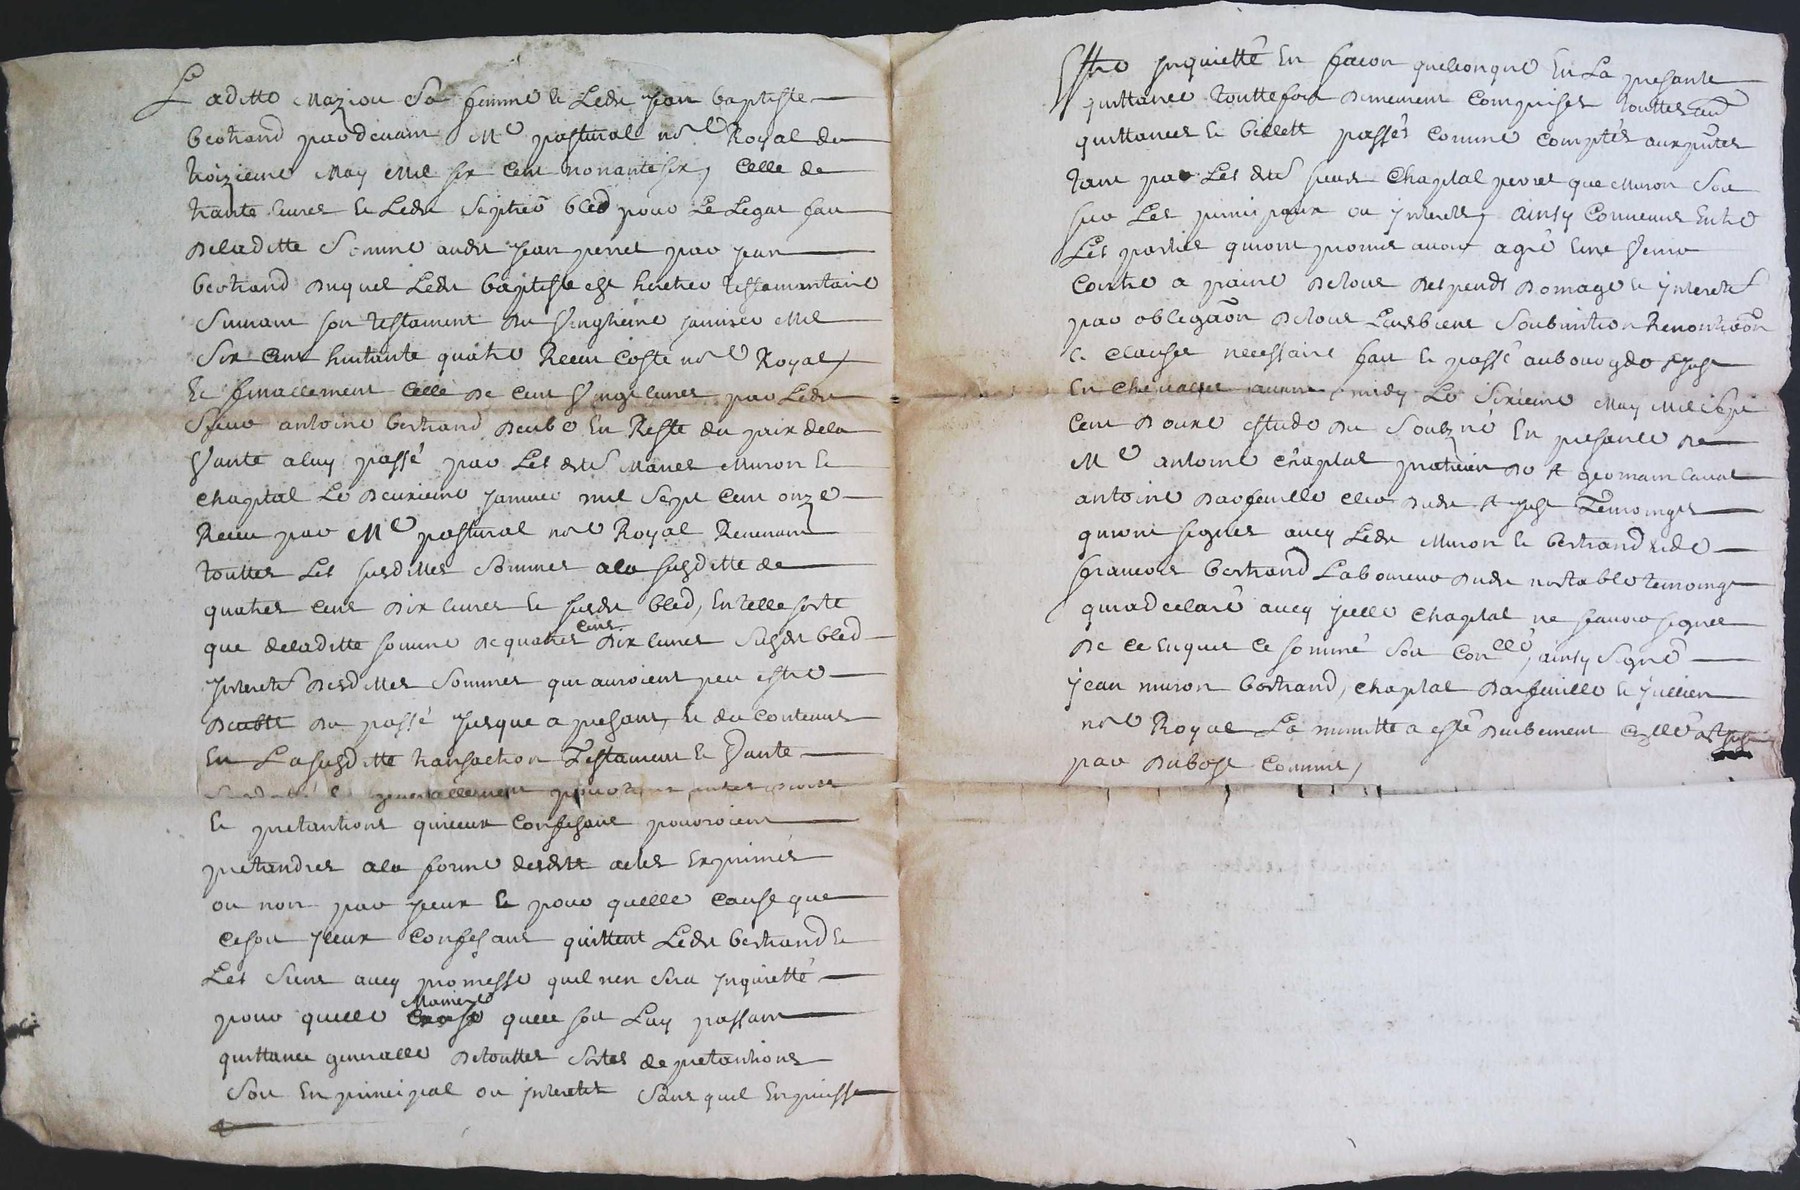 Laditte Maziou Sa femme & Ledt Jean baptiste
bertrand pardevant Me pastural nore Royal du
troizieme May Mil six Cent nonante six, Celle de
trante livres & Ledt Septier bled pour Le Legat fait
De laditte Somme audit Jean perret par Jean
bertrand Duquel Ledt baptiste est heritier testamentaire
Suivant son testament Du Vingtieme janvier Mil
Six Cens huitante quatre Receu Coste nore Royal,
Et finallement Celle De Cent Vingt livres par Ledt
Sieur antoine bertrand Deube En Reste du prix dela
Vante a luy passé par Les dits Mariés Muron &
Chaptal Le Deuxieme Janvier mil Sept Cent onze
Receu par Me pastural nore Royal Revenant
touttes Les susdittes Sommes ala susditte de
quatres Cens Dix livres & susdt bled, En telle sorte
que de laditte somme De quatres Cens Dix livres Susdt bled
Interets Desdittes Sommes qui auroient peu estre
Deubtt Du passé Jusque a presant, & du Contenus
En La susditte transaction Testament & Vante
& generallement pour
& pretantions qu'iceux Confesans pouvroient
pretandres ala forme desdtt actes Exprimés
ou non par yceux & pour quelle Cause que
Ce soit yceux Confesans quittent Ledt bertrand &
Les Siens avey promesse quil nen sera Inquietté
pour quelle Maniere quelle soit Luy passant
quittance generalle De touttes sortes de pretantions
Soit En principal ou Interetst Sans quil En puisse
Estre Inquietté En facon quelconque En La presante
quittance touttefois Deuement Comprises touttes
quittances & billett passés Comme Comptés aux partes
tant par Les dits sieurs Chaptal perret que Muron Soit
sur Les principaux ou Interets, Ainsy Convenus Entre
Les parties quiont promis avoir agré & ne Venir
Contre a paine De tous Despends Domage & Interets
par obligaon De tous Leurs biens Soubmition Renontiaon
& Clauses necessaire fait & passé au bourg de St Just
En Chevallet avant midy Le Sixieme May Mil Sept
Cent Douze Estude Du Soubzné En presance De
Me antoine Chaptal praticien De St germain Laval
antoine Darfeuille Clerc Dudt St Just Temoings
quiont signes avey Ledt Muron & bertrand
francois bertrand Laboureur Dudt notable temoings
quia declaré avey ycelle Chaptal ne scavoir signer
De Ce Enquis Ce sommé Soit Conllé, ainsy Signé
Jean muron bertrand, Chaptal Darfeuille & Jullien
nore Royal La minutte a esté Duebement Conllée a St Just
par Dubost Commis,